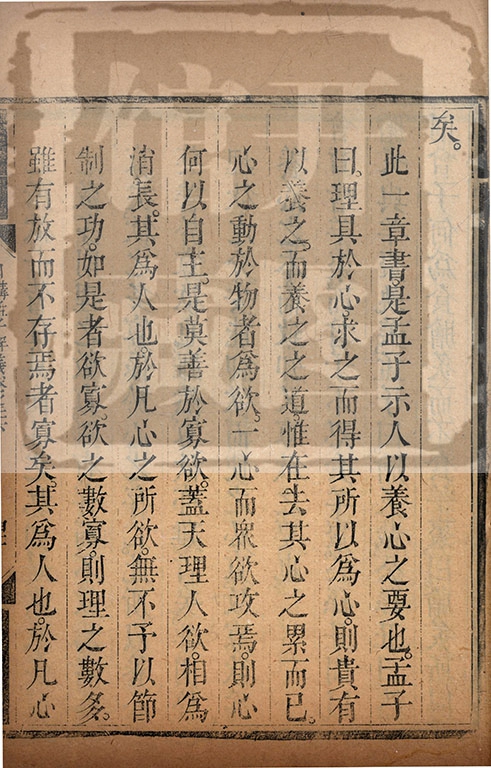 矣。
此一章書。是孟子示人以養心之要也。孟子
曰。理具於心。求之而得其所以為心。則貴有
以養之。而養之之道。惟在去其心之累而已。
心之動於物者為欲。一心而眾欲攻焉。則心
何以自主。是莫善於寡欲。蓋天理人欲相為
消長。其為人也。於凡心之所欲。無不予以節
制之功。如是者欲寡。欲之數寡。則理之數多。
雖有放而不存焉者寡矣。其為人也。於凡心